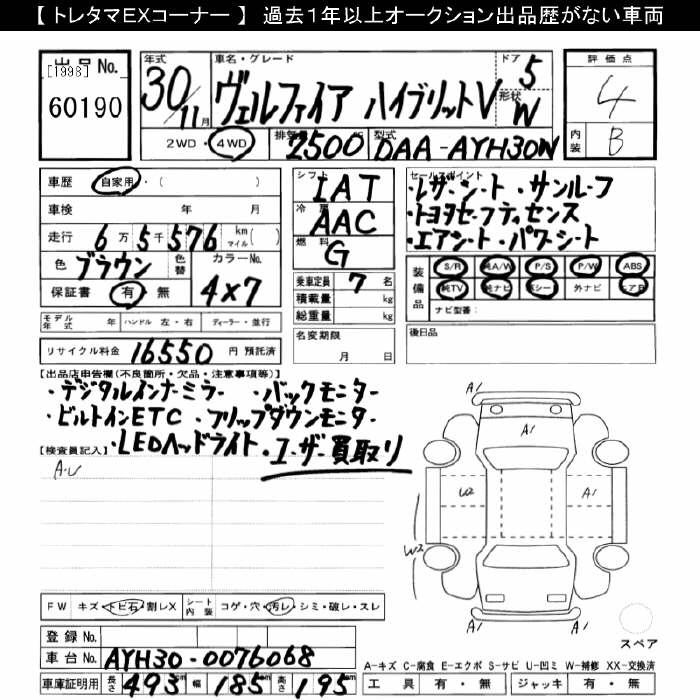 【 トレタマEXコーナー 】 過去1年以上オークション出品歴がない車両
出品No.
[1998]
60190
年式 車名・グレード ドア 評価点
30 / 11月 ヴェルファイア ハイブリットV 5 形状 W
4
内装 B
2WD ・ 4WD 排気量 2500 型式 DAA-AYH30W
車歴 自家用 ・( )
車検 年 月
走行 6万5千576 km マイル ( )
色 ブラウン 色替 カラーNo. 4×7
保証書 有・無
シフト IAT
冷房 AAC
燃料 G
乗車定員 7名
積載量 kg
総重量 kg
名変期限
月 日
セールスポイント
・レザーシート ・サンルーフ
・トヨタセーフティセンス
・エアシート ・パワーシート
装備品 S/R 純A/W P/S P/W ABS
純TV 純ナビ 革シート 外ナビ エアB
ナビ型番:
モデル年式 年 ハンドル 左・右 ディーラー・並行
後日品
リサイクル料金 16550 円 預託済
【出品店申告欄(不良箇所・欠品・注意事項等)】
・デジタルインナーミラー ・バックモニター
・ビルトインETC ・フリップダウンモニター
・LEDヘッドライト ・ユーザー買取り
【検査員記入】
A・U
A1
A1
W2
A1
W2
A1
FW キズ・トビ石・割レX シート内装 コゲ・穴・汚レ・シミ・破レ・スレ
スペア
登録No.
車台No. AYH30-0076068
A-キズ C-腐食 E-エクボ S-サビ U-凹ミ W-補修 XX-交換済
車庫証明用 長さ 493 cm 幅 185 cm 高さ 195 cm
工具 有・無 ジャッキ 有・無